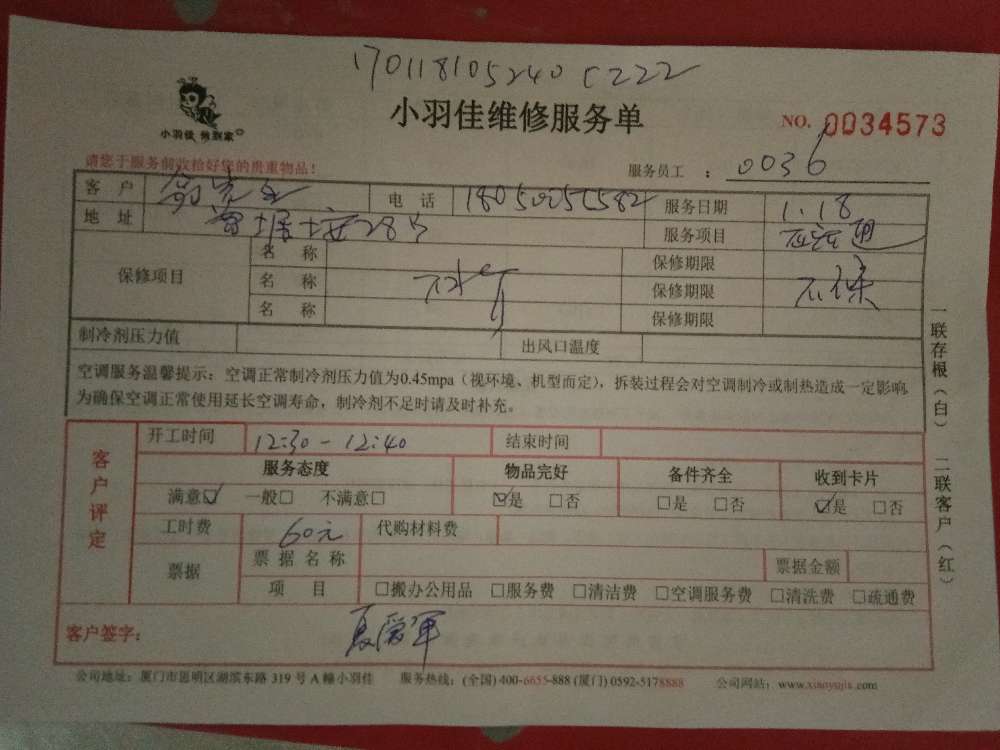 170118105240 CZZZ
小羽佳 做到家
小羽佳维修服务单
NO. 0034573
请您于服务前收拾好您的贵重物品!
服务员工 : 0036
客 户 电 话 服务日期 1.18
地 址 服务项目
保修项目 名 称 保修期限
名 称 保修期限 不保
名 称 保修期限
制冷剂压力值 出风口温度
空调服务温馨提示:空调正常制冷剂压力值为0.45mpa(视环境、机型而定),拆装过程会对空调制冷或制热造成一定影响
为确保空调正常使用延长空调寿命,制冷剂不足时请及时补充。
客户评定
开工时间 12:30-12:40 结束时间
服务态度 物品完好 备件齐全 收到卡片
满意☑ 一般□ 不满意□ ☑是 □否 □是 □否 ☑是 □否
工时费 60元 代购材料费
票据 票据名称 票据金额
项 目 □搬办公用品 □服务费 □清洁费 □空调服务费 □清洗费 □疏通费
客户签字: 夏爱军
公司地址:厦门市思明区湖滨东路 319 号 A 幢小羽佳 服务热线:(全国) 400-6655-888 (厦门) 0592-5178888 公司网站:www.xiaoyujia.com
一联存根(白) 二联客户(红)